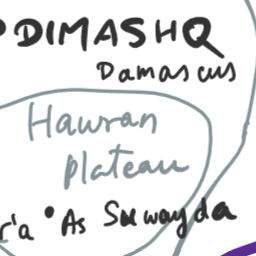 DIMASHQ
Damascus
Hawran
plateau
r'a • As Suwayda